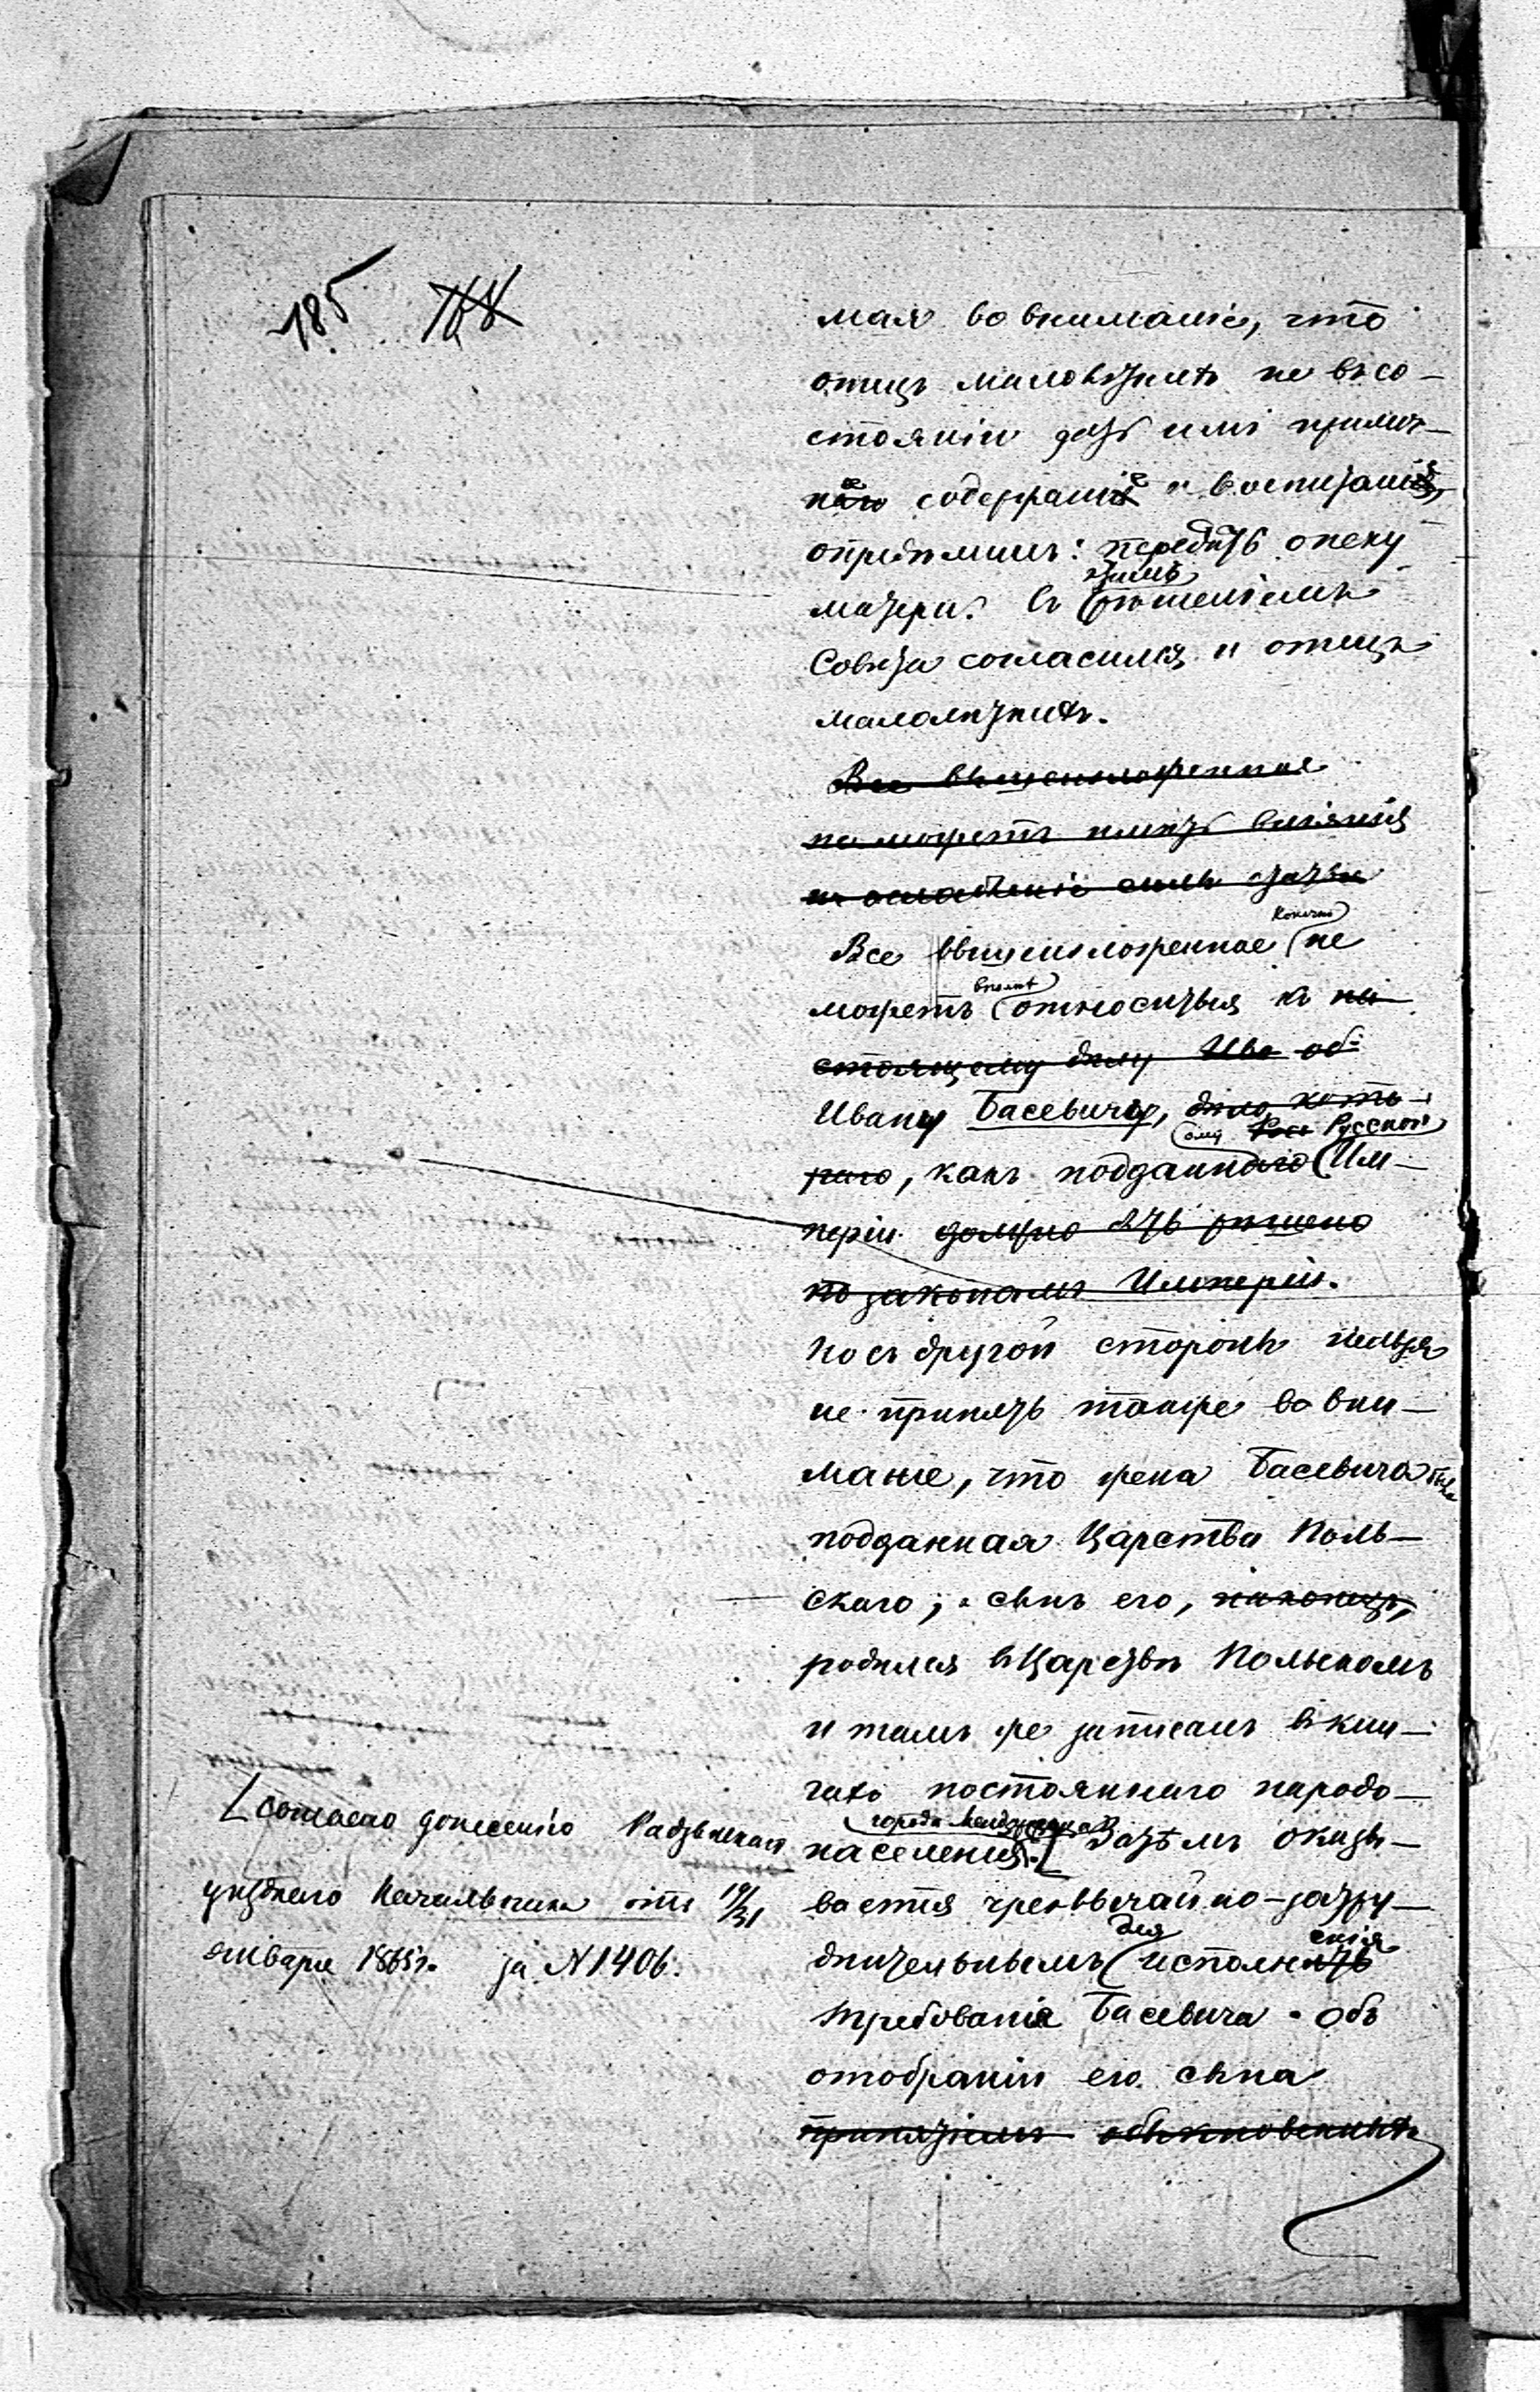 185
мая во вниманіе, что
отецъ малолѣтнихъ не въ со-
стояніи дать имъ прилич-
ное содержаніе и воспитанія,
опредѣлилъ: передать опеку
матери. Съ этимъ рѣшеніемъ
Совѣта согласился и отецъ
малолѣтнихъ.
Все вышеизложенное
не можетъ имѣть вліянія
на ослабленіе силы статьи
Все вышеизложенное конечно не
можетъ вполнѣ относиться къ на-
стоящему дѣлу Ива об-
Ивану Басевичу, дѣло кото-
раго, какъ подданному Русской Им-
періи должно быть рѣшено
по законамъ Имперіи.
Но съ другой стороны нельзя
не принять также во вни-
маніе, что жена Басевича была
подданная Царства Поль-
скаго; сынъ его, наконецъ,
родился въ Царствѣ Польскомъ
и тамъ же записанъ въ кни-
гахъ постояннаго народо-
населенія города [ Затѣмъ оказы-
вается чрезвычайно-затру-
днительнымъ для исполненія
требованія Басевича объ
отобраніи его сына
принятіемъ обыкновенныхъ
[ согласно донесенію Радзынскаго
уѣзднаго Начальника отъ 19/31
января 1865 г. за N 1406.